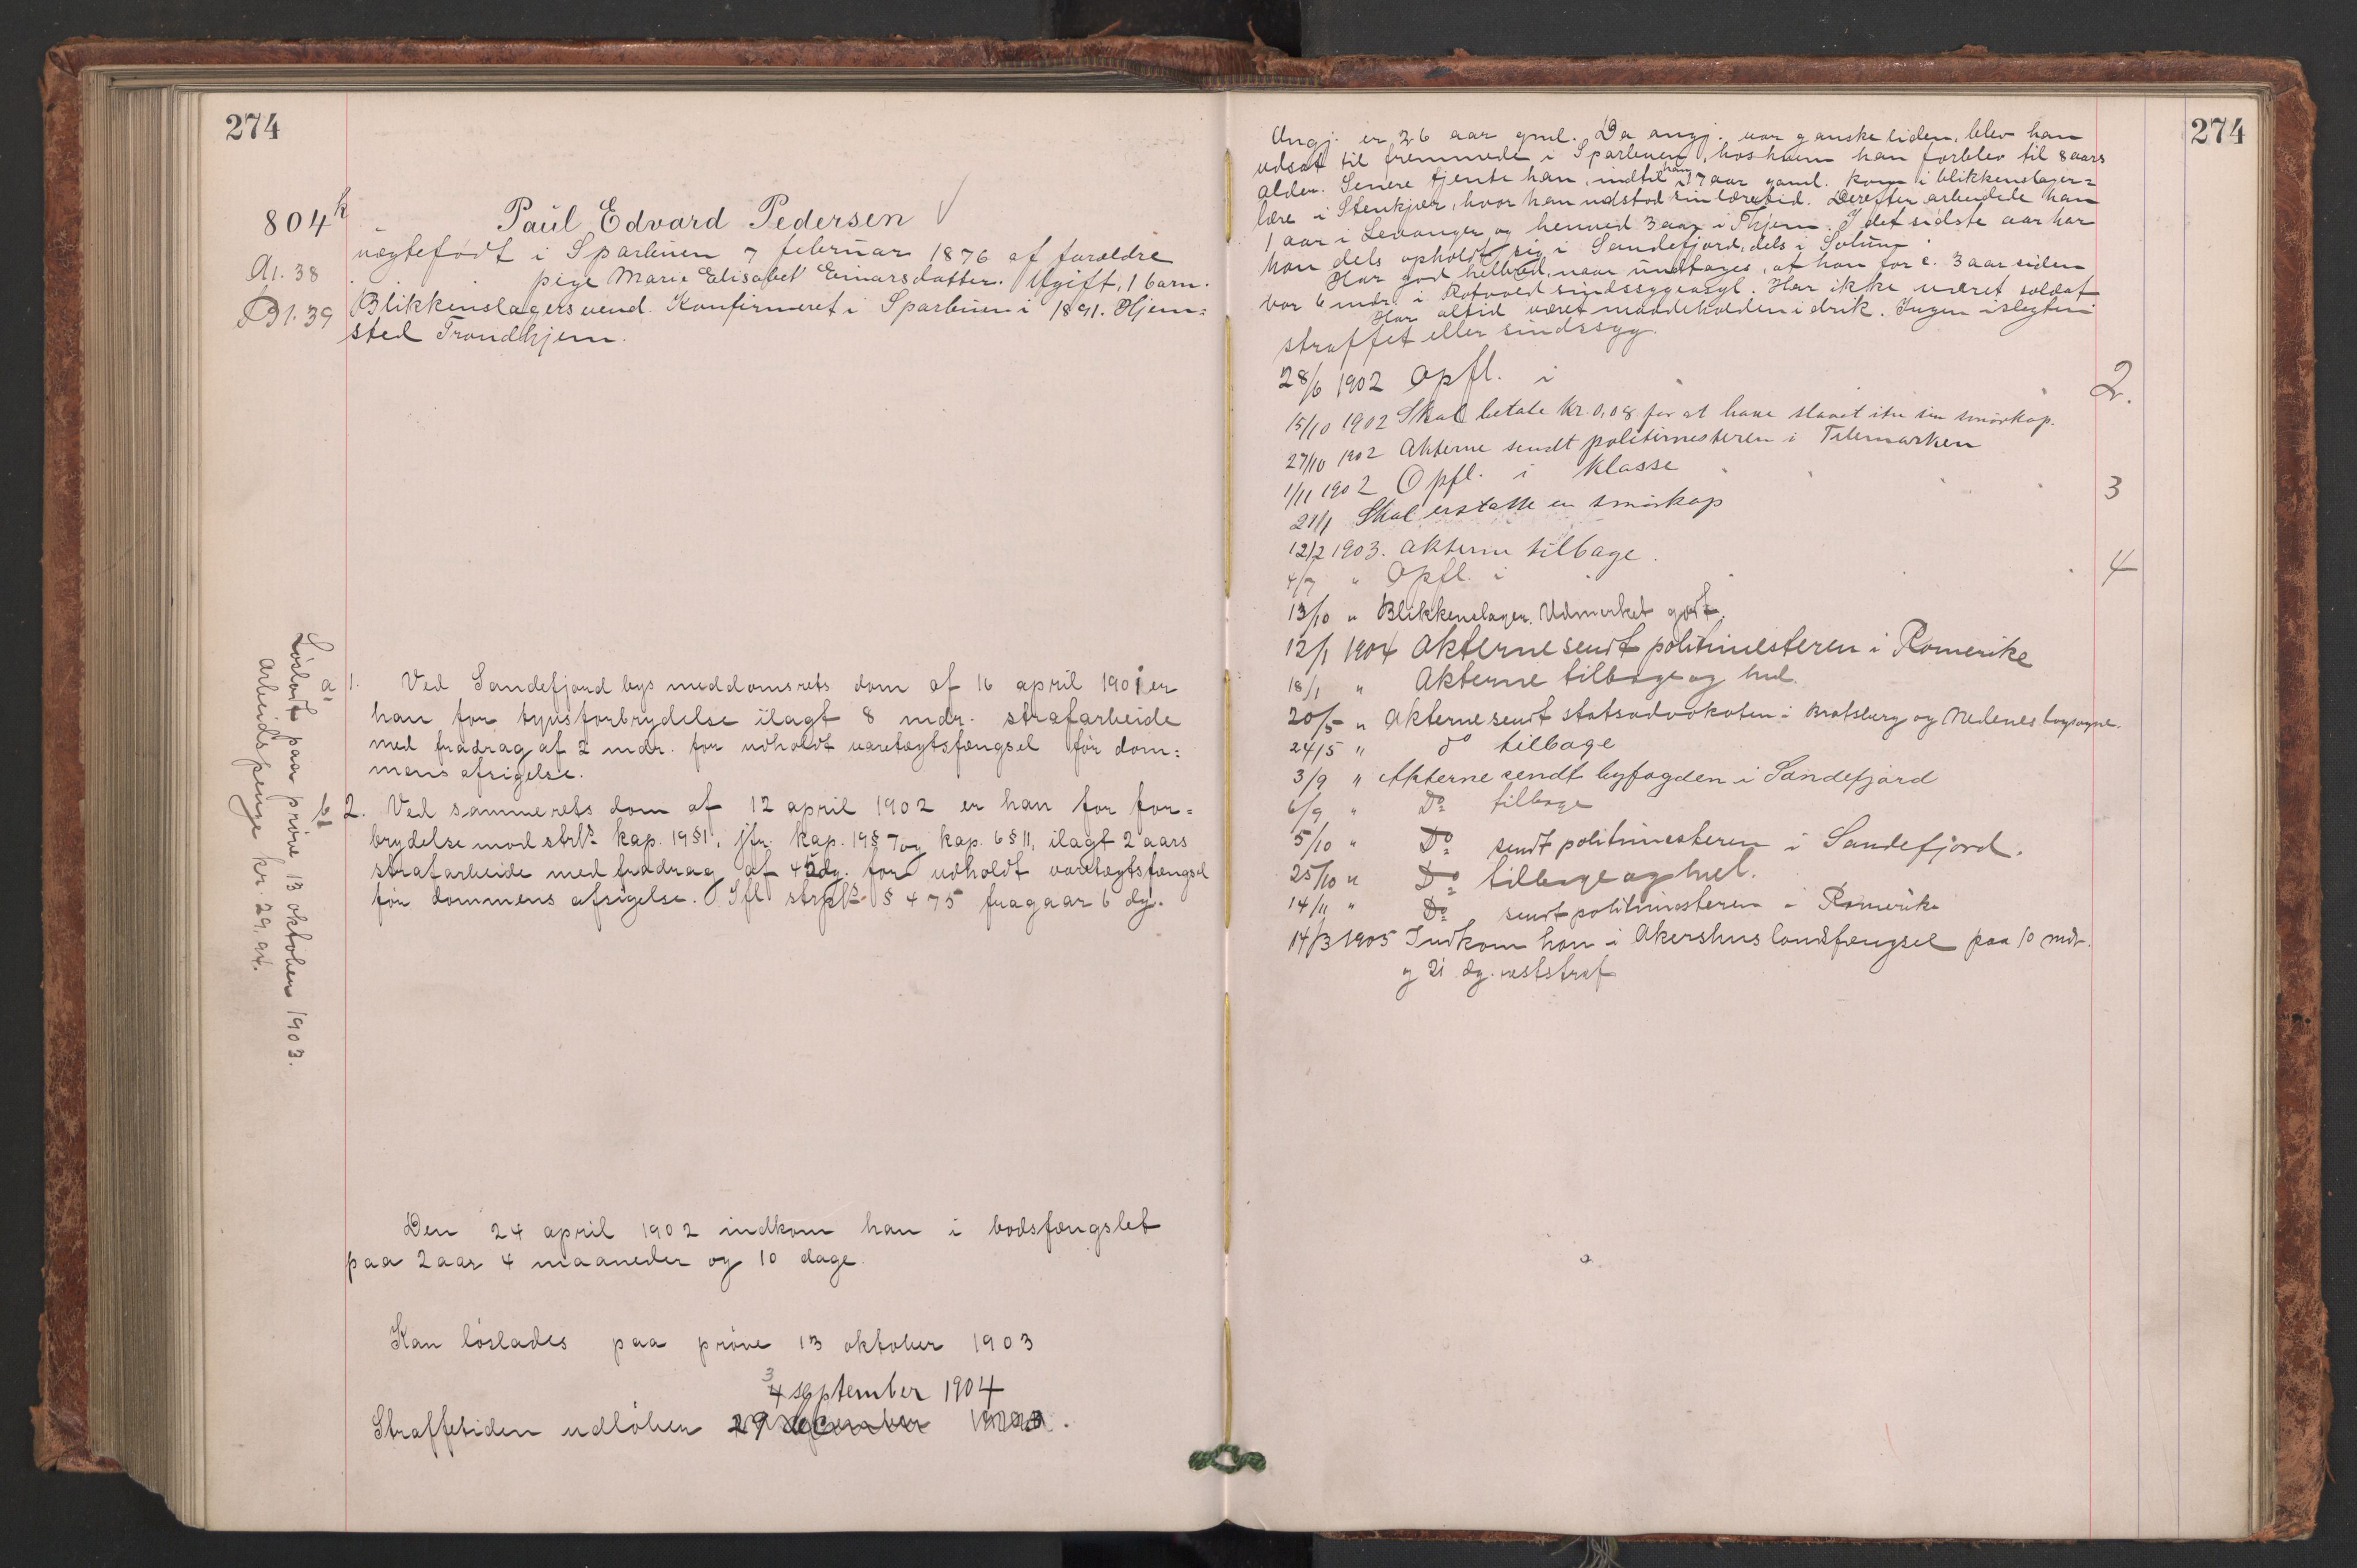 274
804 k
Paul Edvard Pedersen
uægtefødt i Sparbuen 7 februar 1876 af forældre
A1. 38
pige Marie Elisabet Einarsdatter. Ugift, 1 barn.
B1. 39
Blikkenslagersvend. Konfirmeret i Sparbuen i 1891. Hjem=
sted Trondhjem.
a 1. Ved Sandefjord bys meddomsrets dom af 16 april 1901 er
han for tyvsforbrydelse ilagt 8 mdr. strafarbeide
med fradrag af 2 mdr. for udholdt varetægtsfængsel før dom=
mens afsigelse.
b 2. Ved sammerets dom af 12 april 1902 er han for for=
brydelse mod strl's kap. 19 § 1, jfr. kap. 19 § 7 og kap. 6 § 11, ilagt 2 aars
strafarbeide med fradrag af 45 dg. for udholdt varetægtsfængsel
før dommens afsigelse. Ifl. strpl's § 475 fragaar 6 dg.
Løsladt paa prøve 13 oktober 1903.
Arbeidspenge kr. 29,94.
Den 24 april 1902 indkom han i bodsfængslet
paa 2 aar 4 maaneder og 10 dage.
Kan løslades paa prøve 13 oktober 1903
3
4 september 1904
Straffetiden udløber 29 december 1903.
274
Angj. er 26 aar gml. Da angj. var ganske liden, blev han
udsat til fremmede i Sparbuen, hos hvem han forblev til 8 aars
alder. Senere tjente han, indtil han 17 aar gaml. kom i blikkenslager=
lære i Stenkjær, hvor han udstod sin læretid. Derefter arbeidede han
1 aar i Levanger og henved 3 aar i Thjem. I det sidste aar har
han dels opholdt sig i Sandefjord, dels i Solum.
Har god helbred, naar undtages, at han for c. 3 aar siden
var 6 mdr. i Rotvold sindssygeasyl. Har ikke været soldat
Har altid været maadeholden i drik. Ingen i slegten
straffet eller sindssyg.
28/6 1902 Opfl. i 2.
15/10 1902 Skal betale kr. 0,08 for at have slaaet itu sin smørkop.
27/10 1902 Akterne sendt politimesteren i Telemarken
1/11 1902 Opfl. i klasse 3
21/1 Skal erstatte en smørkop
12/2 1903. Akterne tilbage.
4/7 " Opfl. i 4
13/10 " Blikkenslager. Udmerket godt.
12/1 1904 Akterne sendt politimesteren i Romerike
18/1 " Akterne tilbage og hul.
20/5 " Akterne sendt statsadvokaten i Bratsberg og Nedenes lagsogne.
24/5 " do tilbage
3/9 " Akterne sendt byfogden i Sandefjord
6/9 " Do tilbage
5/10 " Do sendt politimesteren i Sandefjord.
25/10 " Do tilbage og hul.
14/11 " Do sendt politimesteren i Romerike
14/3 1905 Indkom han i Akershus landsfængsel paa 10 mdr.
og 21 dg. reststraf